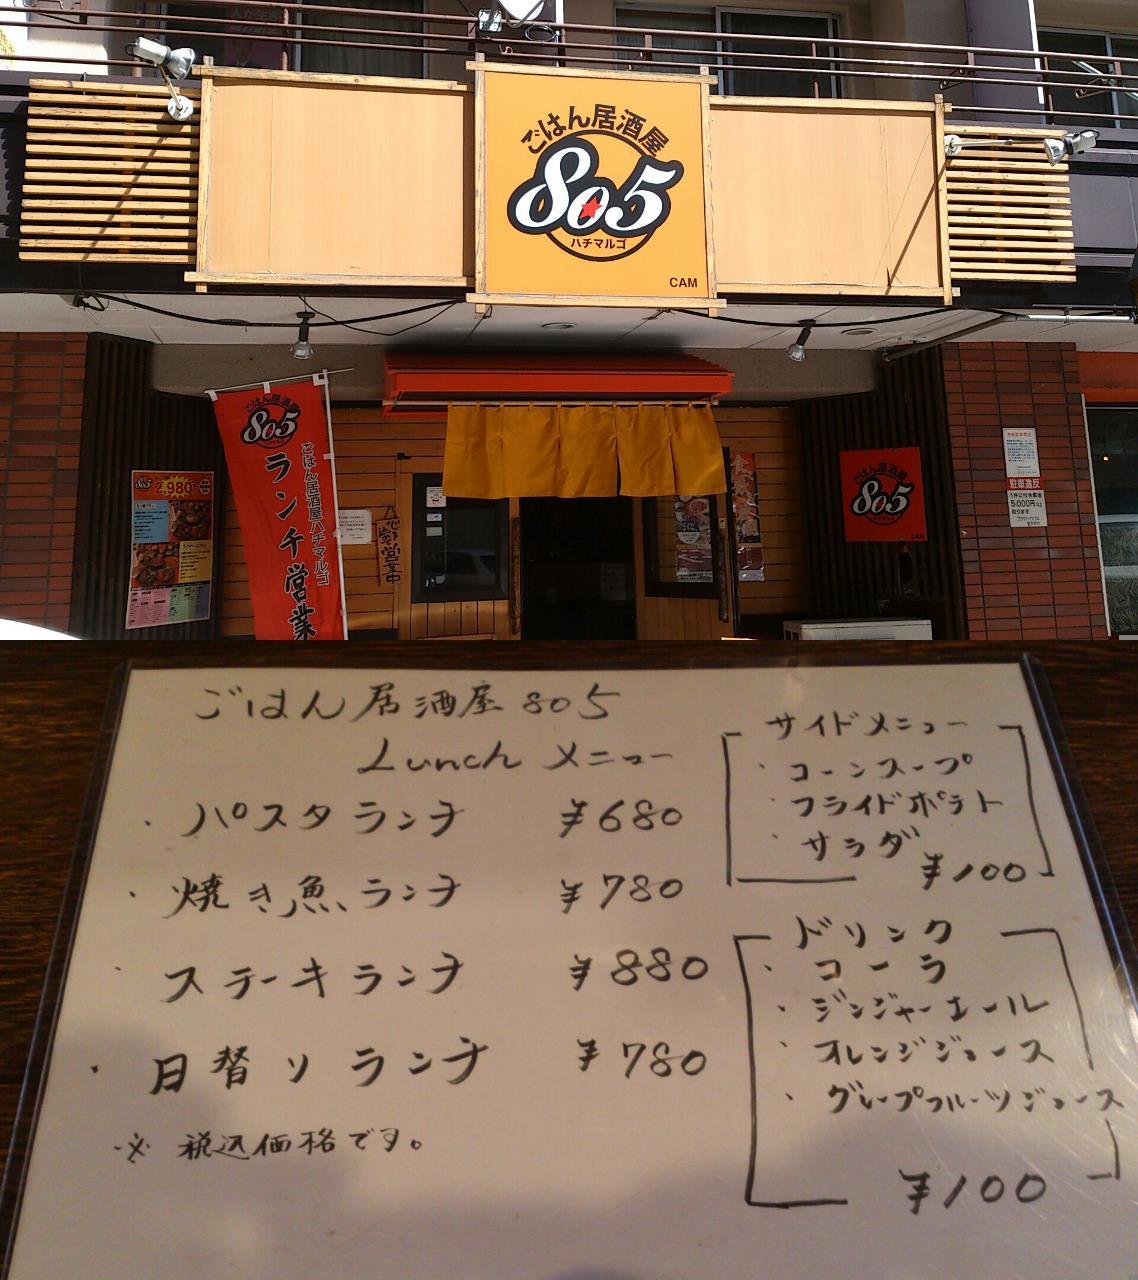 ごはん居酒屋
805
ハチマルゴ
CAM
ごはん居酒屋
805
ごはん居酒屋ハチマルゴ
ランチ営業
805
2,980
営業中
ごはん居酒屋
805
ハチマルゴ
CAM
駐車違反
5,000円
ごはん居酒屋805
Lunch メニュー
・パスタランチ ¥680
・焼き魚ランチ ¥780
・ステーキランチ ¥880
・日替りランチ ¥780
※税込価格です。
サイドメニュー
・コーンスープ
・フライドポテト
・サラダ
¥100
ドリンク
・コーラ
・ジンジャーエール
・オレンジジュース
・グレープフルーツジュース
¥100